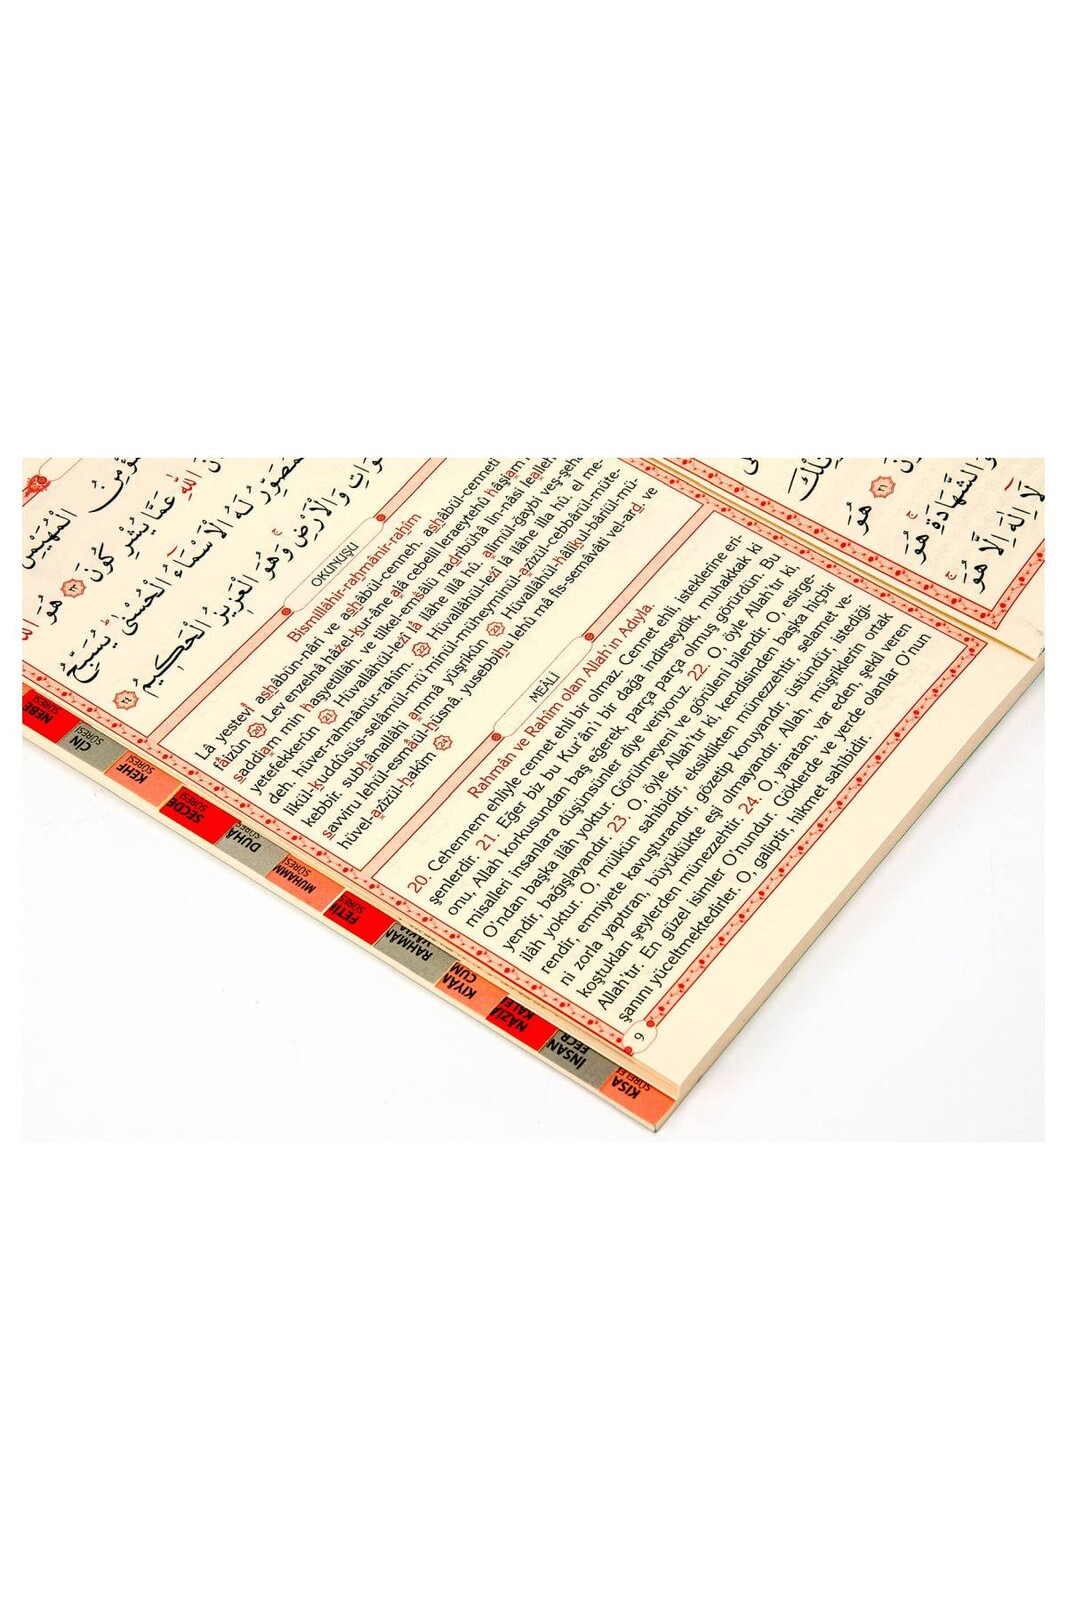 ؤْمِنُ الْمُهَيْمِنُ
اللّٰهِ عَمَّا يُشْرِكُونَ ﴿٢٣﴾ هُوَ اللّٰهُ
الْمُصَوِّرُ لَهُ الْاَسْمَٓاءُ الْحُسْنٰىۜ يُسَبِّحُ
وَالْاَرْضِۚ وَهُوَ الْعَزٖيزُ الْحَكٖيمُ ﴿٢٤﴾
OKUNUŞU
Bismillâhir-rahmânir-rahîm
Lâ yestevî ashâbün-nâri ve ashâbül-cenneh. ashâbül-cenneti
fâizûn 20 Lev enzelnâ hâzel-kur-âne alâ cebelil leraeytehû hâşiam
saddiam min haşyetillâh. ve tilkel-emsâlü nadribühâ lin-nâsi lealleh
yetefekkerûn 21 Hüvallâhül-lezî lâ ilâhe illâ hû. alimül-ğaybi veş-şeh
deh. hüver-rahmânür-rahîm. 22 Hüvallâhül-lezî lâ ilâhe illa hû. el me-
likül-kuddûsüs-selâmül-mü'minül-müheyminül-azîzül-cebbârül-müte-
kebbir. subhânallâhi ammâ yüşrikûn 23 Hüvallâhül-hâlikul-bâriül-mü-
savviru lehül-esmâül-hüsnâ. yusebbihu lehû mâ fis-semâvâti vel-ard ve
hüvel-azîzül-hakîm 24
MEÂLİ
Rahmân ve Rahîm olan Allah'ın Adıyla.
20. Cehennem ehliyle cennet ehli bir olmaz. Cennet ehli, isteklerine eri-
şenlerdir. 21. Eğer biz bu Kur'ân'ı bir dağa indirseydik, muhakkak ki
onu, Allah korkusundan baş eğerek, parça parça olmuş görürdün. Bu
misalleri insanlara düşünsünler diye veriyoruz. 22. O, öyle Allah'tır ki,
O'ndan başka ilâh yoktur. Görülmeyeni ve görüleni bilendir. O, esirge-
yendir, bağışlayandır. 23. O, öyle Allah'tır ki, kendisinden başka hiçbir
ilâh yoktur. O, mülkün sahibidir, eksiklikten münezzehtir, selamet ve-
rendir, emniyete kavuşturandır, gözetip koruyandır, üstündür, istediği-
ni zorla yaptıran, büyüklükte eşi olmayandır. Allah, müşriklerin ortak
koştukları şeylerden münezzehtir. 24. O, yaratan, var eden, şekil veren
Allah'tır. En güzel isimler O'nundur. Göklerde ve yerde olanlar O'nun
şanını yüceltmektedirler. O, galiptir, hikmet sahibidir.
9
NEBE SÛRESİ
CİN SÛRESİ
KEHF SÛRESİ
SECDE SÛRESİ
DUHÂ SÛRESİ
MUHAMM SÛRESİ
FETİH SÛRESİ
RAHMAN
KIYÂM CUM
NÂZİA KALE
İNSAN FECR
KISA SÛRELE
وَالشَّهَادَةِۚ هُوَ
هُوَ
لَٓا اِلٰهَ اِلَّا هُوَۚ